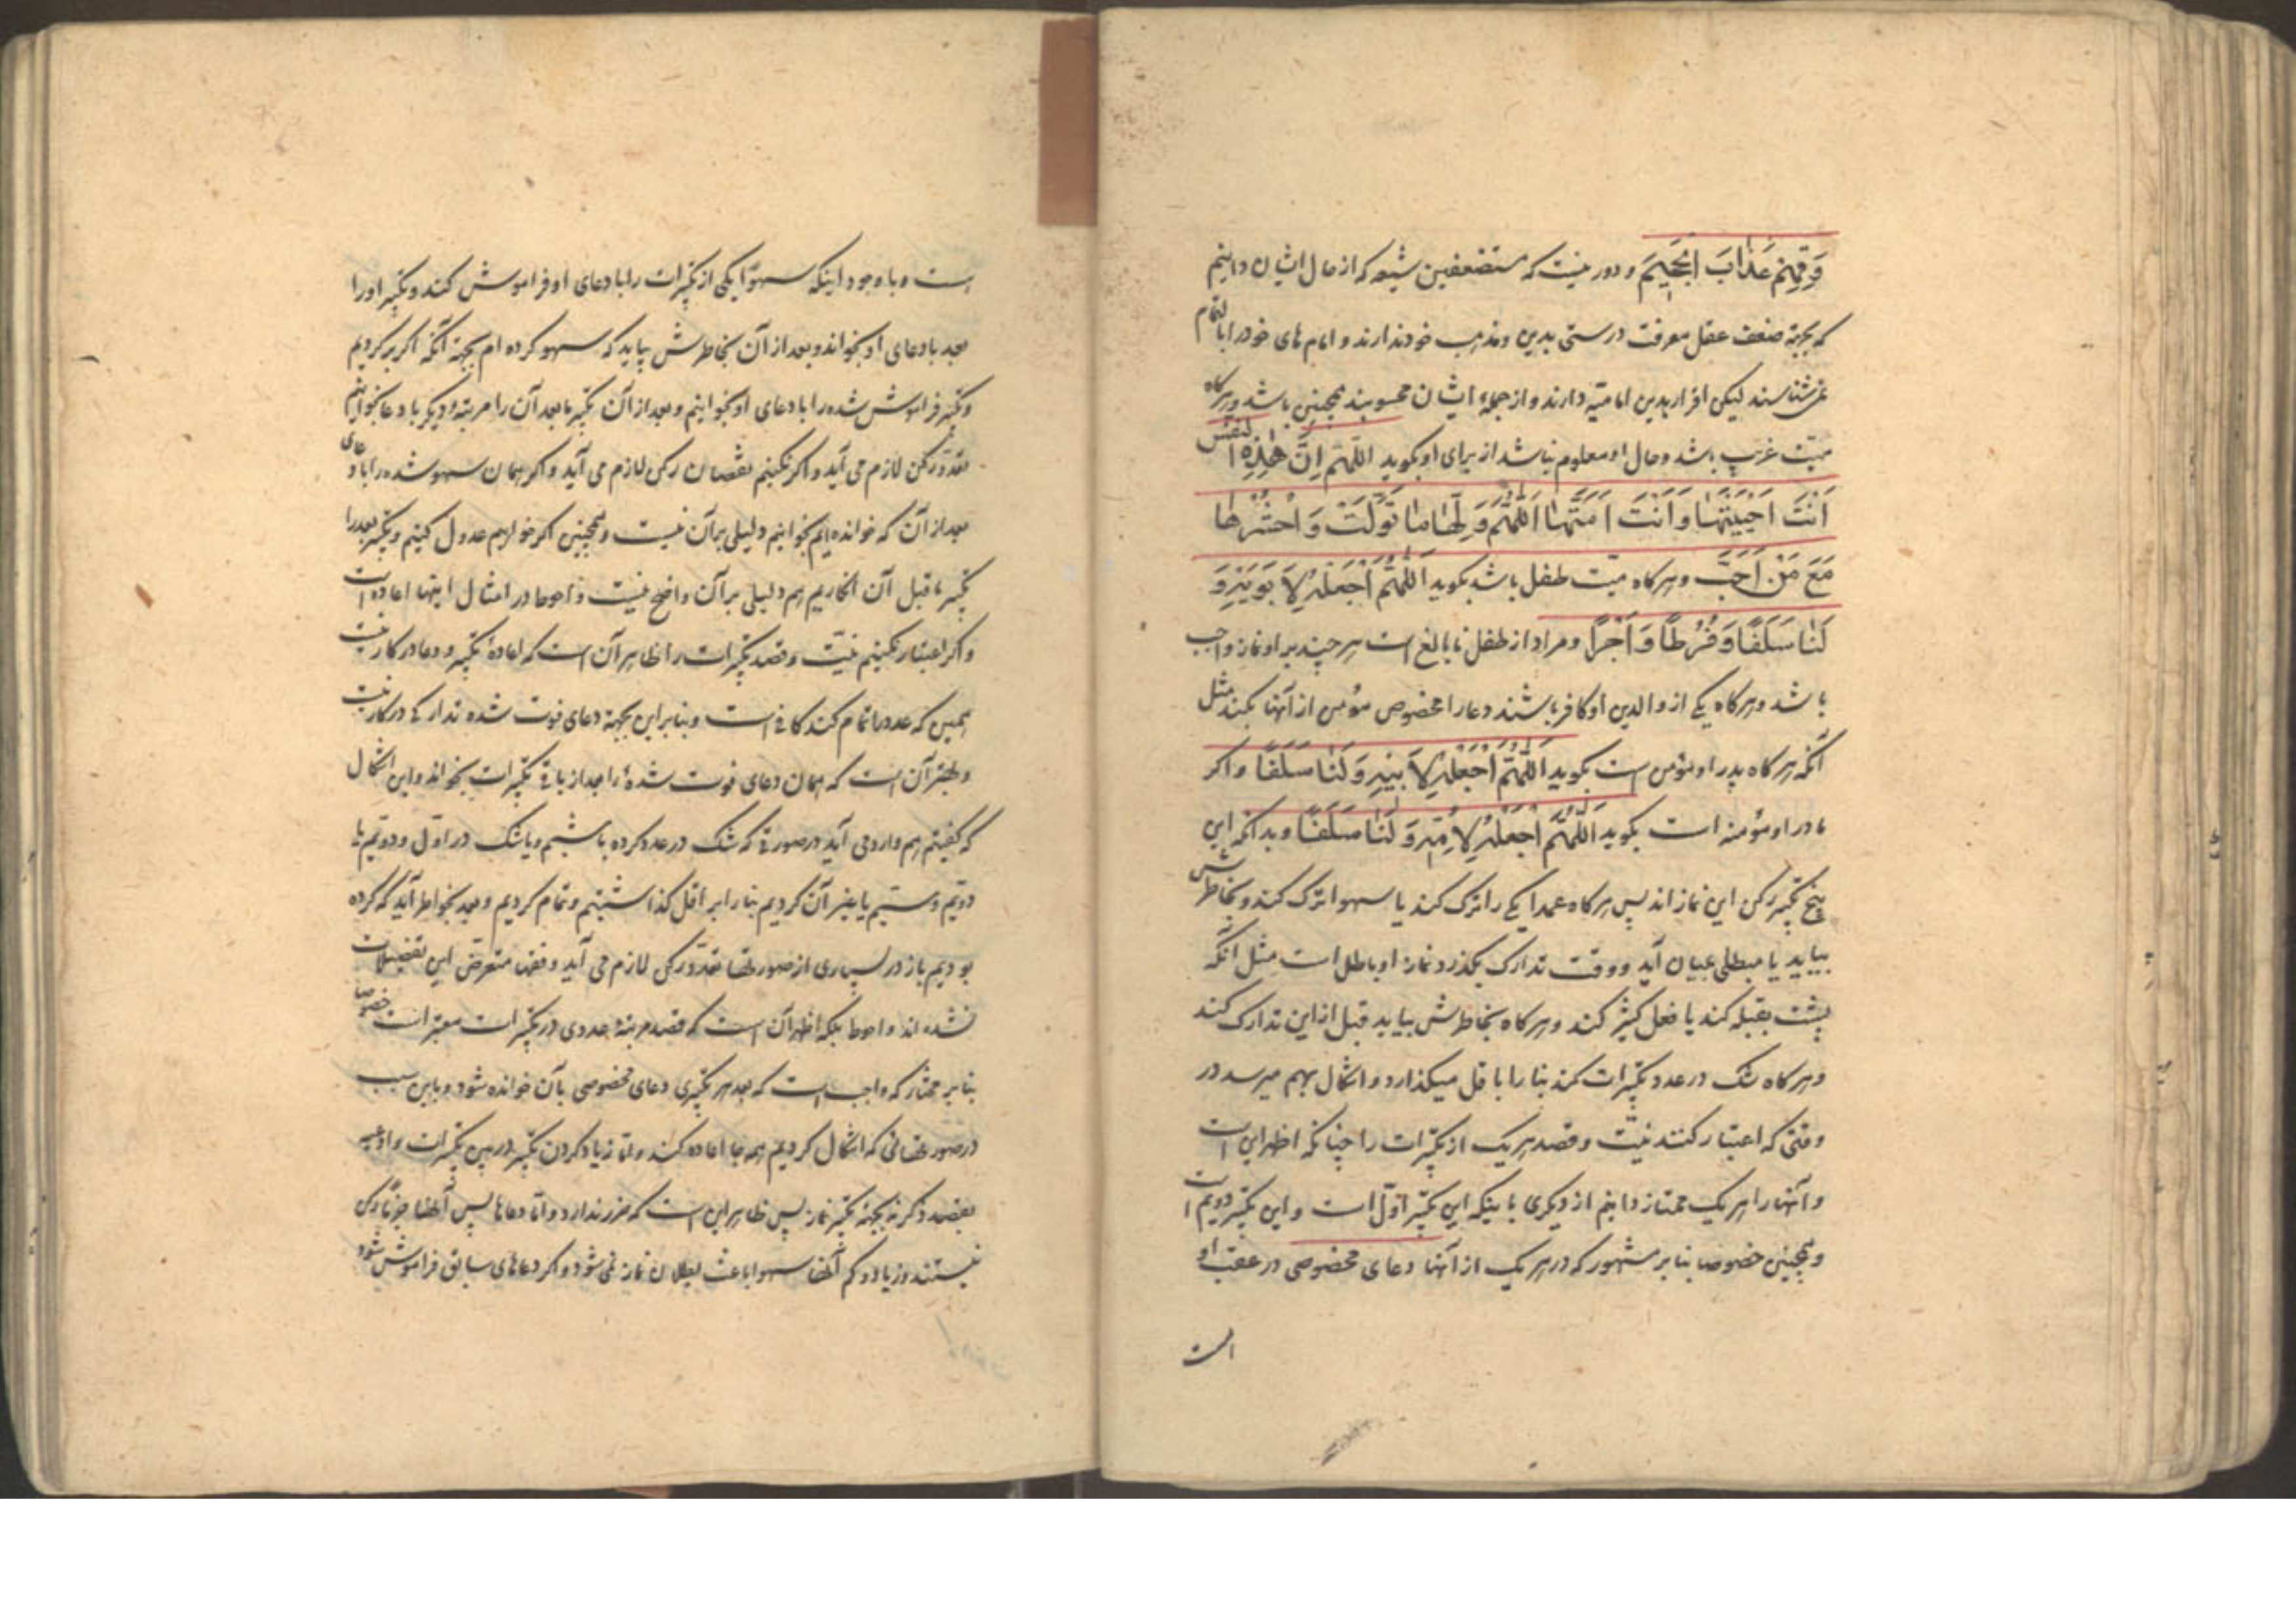 وَقِهِمْ عَذَابَ الْجَحِیمَ و دور نیست که مستضعفین شیعه که از حال ایشان دانیم
که بجهة ضعف عقل معرفت درستی بدین و مذهب خود ندارند و امام های خود را بالتمام
نمی شناسند لیکن اقرار بدین امامیّه دارند و از جملهٔ ایشان محسوبند همچنین باشد و هرگاه
میّت غریب باشد و حال او معلوم نباشد از برای او بگوید اللّهمّ اِنَّ هٰذِهِ النَفْسَ
اَنْتَ اَحْیَیْتَهٰا وَ اَنْتَ اَمَتَّهٰا اَللّٰهُمَّ وَلِّهٰا مٰا تَوَلَّتْ وَ احْشُرْهٰا
مَعَ مَنْ اَحَبَّ و هرکاه میّت طفل باشد بکوید اَللّٰهُمَّ اجْعَلْهُ لِاَبَوَیْهِ وَ
لَنٰا سَلَفًا وَ فُرُطًا وَ اَجْرًا و مراد از طفل نابالغ است هر چند بر او نماز واجب
باشد و هرکاه یکی از والدین او کافر باشند دعا را مخصوص مؤمن از آنها بکند مثل
آنکه هرکاه پدر او مؤمن است بکوید اَللّٰهُمَّ اجْعَلْهُ لِاَبِیْهِ وَ لَنٰا سَلَفًا و اکر
مادر او مؤمنه است بکوید اَللّٰهُمَّ اجْعَلْهُ لِاُمِّهِ وَ لَنٰا سَلَفًا و بدانکه این
پنج تکبیر رکن این نماز اند پس هرکاه عمدا یکی را ترک کند یا سهوا ترک کند و بخاطرش
بیاید یا مبطلی بمیان آید و وقت تدارک بکذرد نماز او باطل است مثل آنکه
پشت بقبله کند یا فعل کثیر کند و هرکاه بخاطرش بیاید قبل از این تدارک کند
و هرکاه شک در عدد تکبیرات کند بنا را باقل میکذارد و اشکال بهم میرسد در
وقتی که اعتبار کنند نیّت و قصد هریک از تکبیرات را چنانکه اظهر این است
و آنها را هر یک ممتاز دانیم از دیکری باینکه این تکبیر اوّل است و این تکبیر دویم است
و همچنین خصوصا بنا بر مشهور که در هریک از آنها دعای مخصوصی در عقب او
است
است و با وجود اینکه سهوًا یکی از تکبیرات را با دعای او فراموش کند و تکبیر او را
بعد با دعای او بخواند و بعد از آن بخاطرش بیاید که سهو کرده ام بجهة آنکه اکر برکردیم
و تکبیر فراموش شده را با دعای او بخوانیم و بعد از آن تکبیر مابعد آن را مرتبهٔ دیکر با دعا بخوانیم
تعدّد رکن لازم می آید و اکر نکنیم نقصان رکن لازم می آید و اکر همان سهو شده را با دعای
بعد از آن که خوانده ایم بخوانیم دلیلی بر آن نیست و همچنین اکر خواهیم عدول کنیم و تکبیر بعد را
تکبیر ماقبل آن انکاریم هم دلیلی بر آن واضح نیست و احوط در امثال اینها اعاده است
و اکر اعتبار نکنیم نیّت و قصد تکبیرات را ظاهر آن است که اعادهٔ تکبیر و دعا در کار نیست
همین که عدد را تمام کند کافی است و بنابراین بجهة دعای فوت شده تدارکی در کار نیست
و بهتر آن است که همان دعای فوت شدهٔ را بعد از باقی تکبیرات بخواند و این اشکال
که کفتیم هم وارد می آید در صورتی که شک در عدد کرده باشیم و یا شک در اوّل و دویم یا
دویم و سیّم یا غیر آن کردیم بنا را بر اقل کذاشتیم و تمام کردیم و بعد بخواطر آید که کرده
بودیم باز در بسیاری از صورتها تعدّد رکن لازم می آید و فقها متعرّض این تفصیلات
نشده اند و احوط بلکه اظهر آن است که قصد مرتبهٔ عددی در تکبیرات معتبر است خصوصا
بنا بر مختار که واجب است که بعد هر تکبیری دعای مخصوصی بآن خوانده شود و باین سبب
در صورتهائی که اشکال کردیم همه جا اعاده کند و امّا زیاد کردن تکبیر در بین تکبیرات و ادعیه
بقصد ذکر نه بجهة تکبیر نماز پس ظاهر این است که ضرر ندارد و امّا دعاها پس آنها جزء و رکن
نیستند و زیاد و کم آنها سهوا باعث بطلان نماز نمی شود و اکر دعاهای سابق فراموش شود